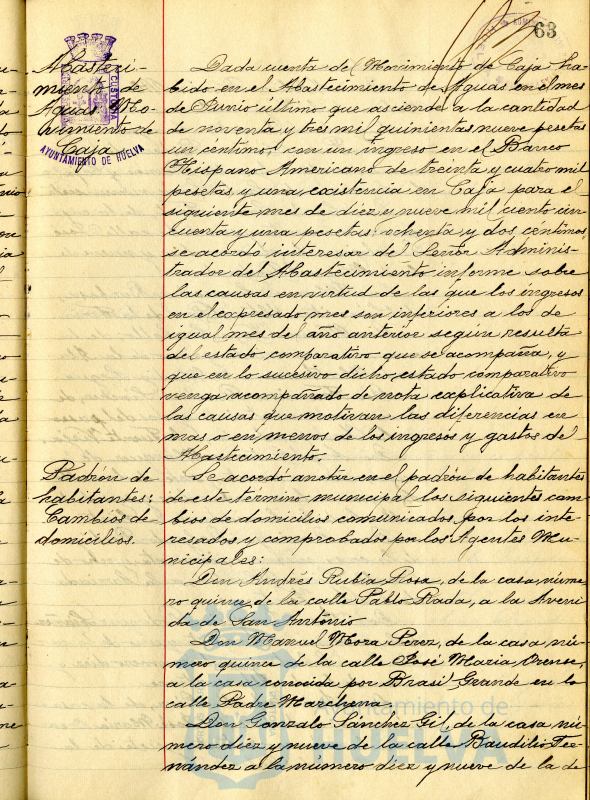 63
Abasteci-
miento de
Aguas. Mo-
vimiento de
Caja
AYUNTAMIENTO DE HUELVA
Dada cuenta del Movimiento de Caja ha-
bido en el Abastecimiento de Aguas en el mes
de Junio último que asciende a la cantidad
de noventa y tres mil quinientas nueve pesetas
un céntimo, con un ingreso en el Banco
Hispano Americano de treinta y cuatro mil
pesetas y una existencia en Caja para el
siguiente mes de diez y nueve mil ciento cin-
cuenta y una pesetas ochenta y dos céntimos,
se acordó interesar del Señor Adminis-
trador del Abastecimiento informe sobre
las causas en virtud de las que los ingresos
en el expresado mes son inferiores a los de
igual mes del año anterior según resulta
del estado comparativo que se acompaña, y
que en lo sucesivo dicho estado comparativo
venga acompañado de nota explicativa de
las causas que motivan las diferencias en
mas o en menos de los ingresos y gastos del
Abastecimiento.
Padrón de
habitantes:
Cambios de
domicilios.
Se acordó anotar en el padrón de habitantes
de este término municipal los siguientes cam-
bios de domicilios comunicados por los inte-
resados y comprobados por los Agentes Mu-
nicipales:
Don Andrés Rubia Rosa, de la casa núme-
ro quince de la calle Pablo Rada, a la Aveni-
da de San Antonio
Don Manuel Mora Pérez, de la casa nú-
mero quince de la calle José Maria Orense,
a la casa conocida por Brasil Grande en la
calle Padre Marchena
Don Gonzalo Sánchez Gil, de la casa nú-
mero diez y nueve de la calle Baudilio Fer-
nández a la número diez y nueve de la de
Ayuntamiento de
HUELVA